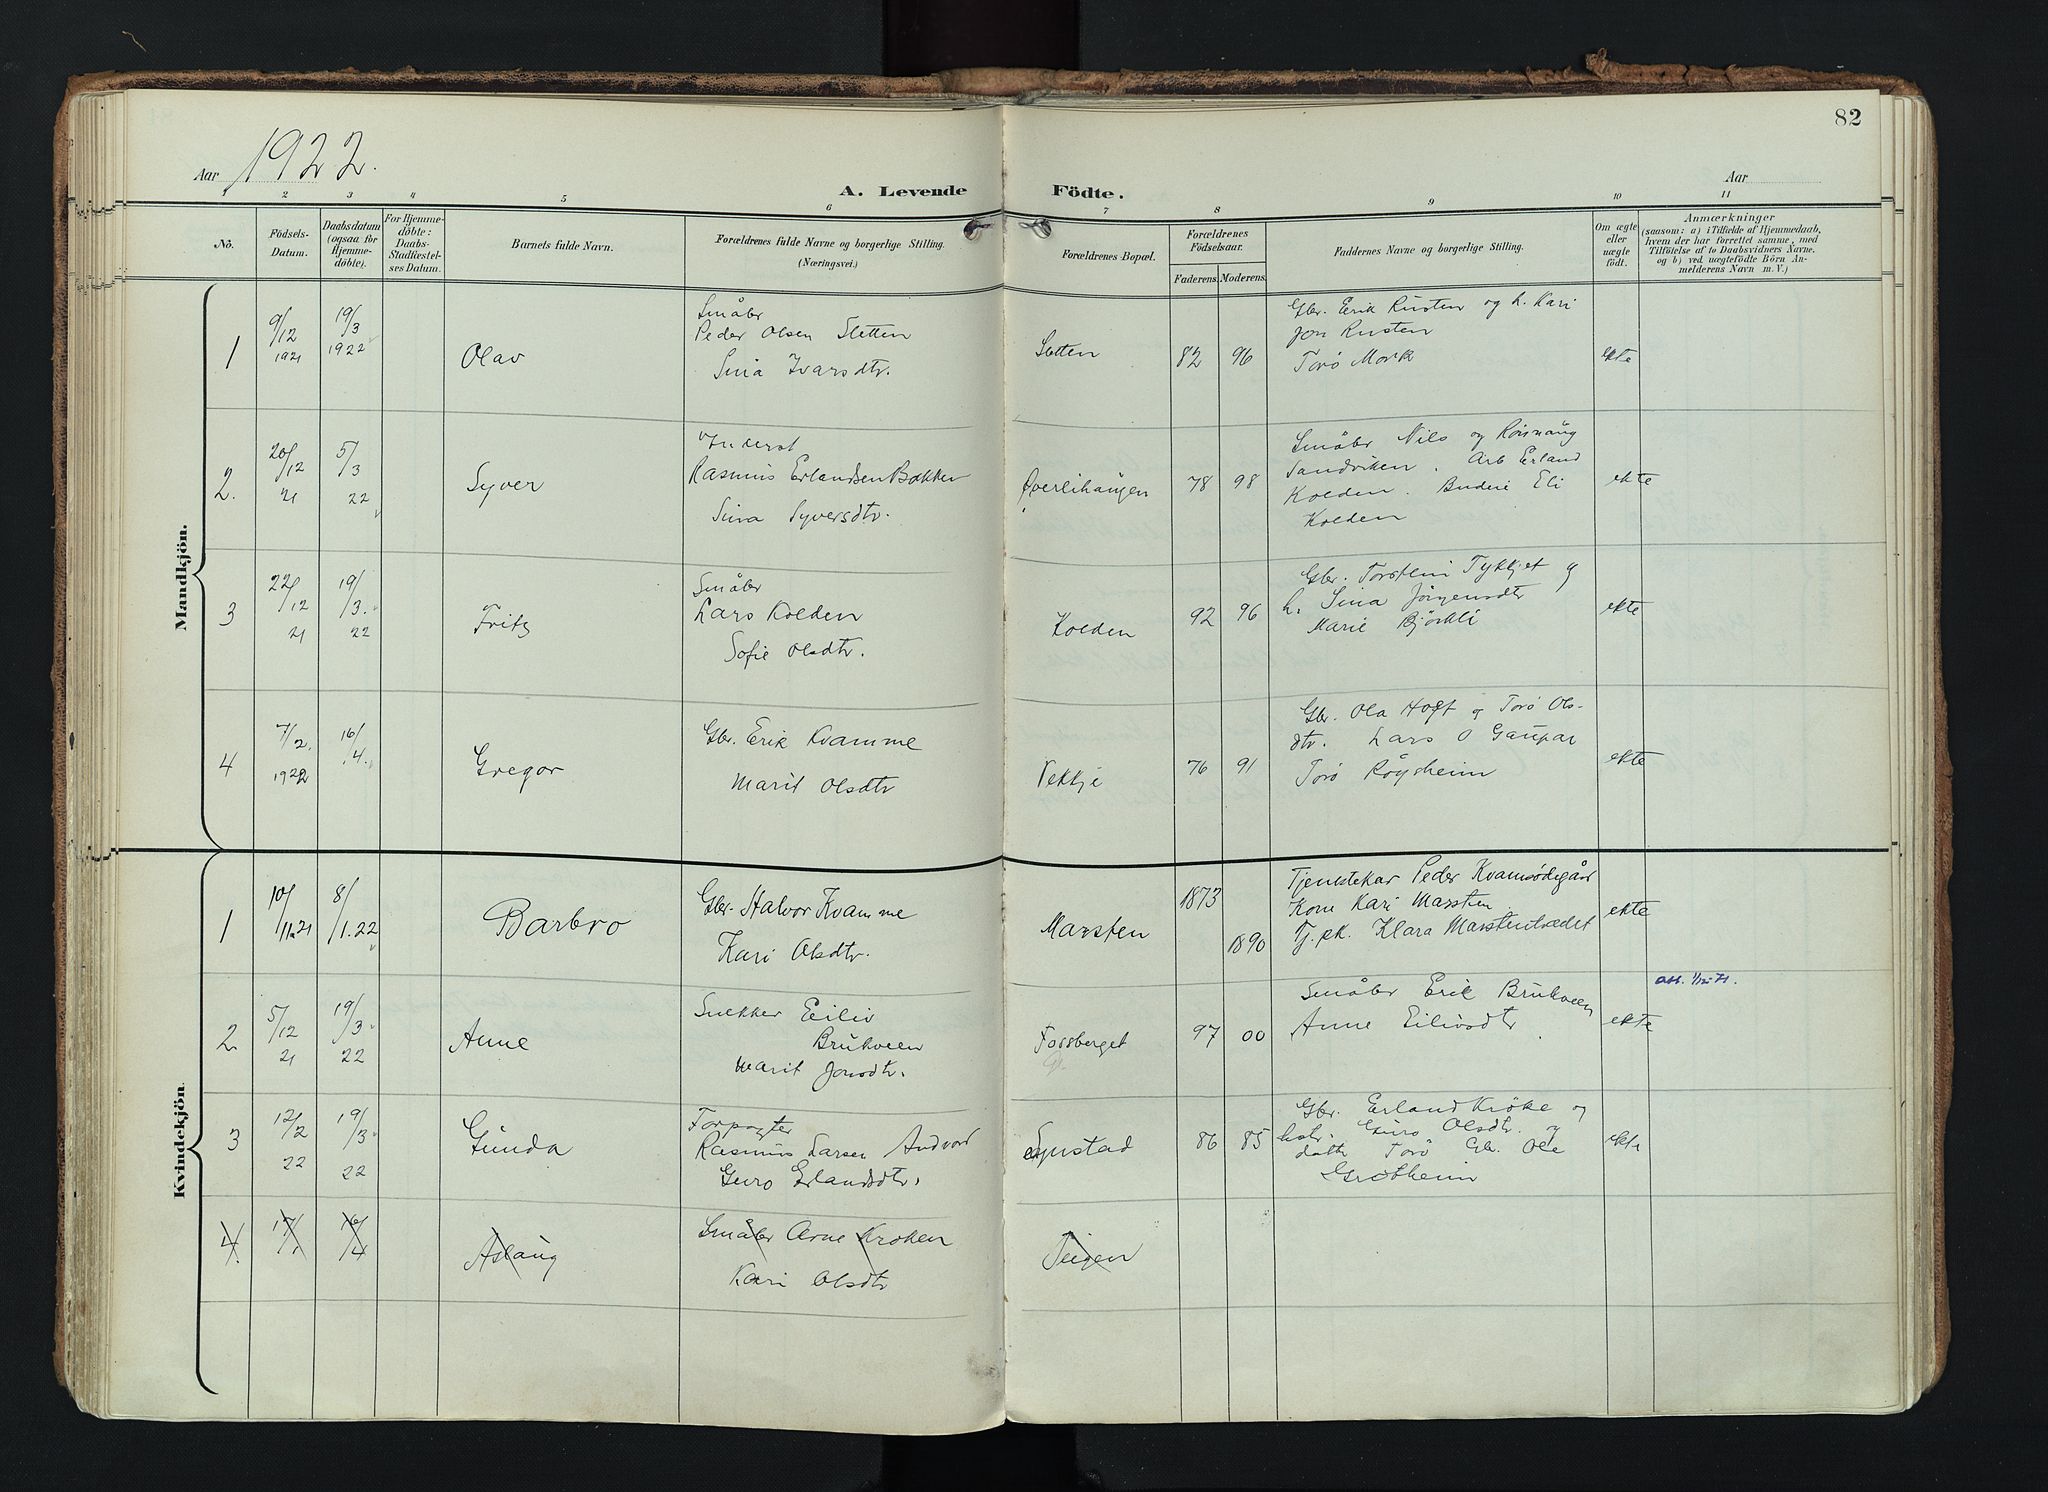 82
Aar 1922.
A. Levende Födte.
Aar
1 2 3 4 5 6 7 8 9 10 11
Nö.
Födsels-Datum.
Daabsdatum (ogsaa for Hjemme-döbte).
For Hjemme-döbte: Daabs-Stadfæstel-ses Datum.
Barnets fulde Navn.
Forældrenes fulde Navne og borgerlige Stilling.
(Næringsvei.)
Forældrenes Bopæl.
Forældrenes Födselsaar.
Faderens. Moderens.
Faddernes Navne og borgerlige Stilling.
Om ægte eller uægte födt.
Anmærkninger
(saasom: a) i Tilfælde af Hjemmedaab, hvem der har forrettet samme, med Tilföielse af to Daabsvidners Navne, og b) ved uægtefödte Börn An-melderens Navn m. V.)
Mandkjön.
1 9/12 1921 19/3 1922 Olav
Småbr
Peder Olsen Sletten
Sina Ivarsdtr.
Sletten 82 96
Gbr. Erik Rusten og h. Kari
Jon Rusten
Torø Mork
ekte
2. 20/12 21 5/3 22 Syver
Inderst
Rasmus Erlandsen Bakken
Sina Syversdtr.
Øverlihaugen 78 98
Småbr Nils og Rønnaug
Sandviken. Arb Erland
Kolden. Budeie Eli
Kolden
ekte
3 22/12 21 19/3. 22 Fritz
Småbr
Lars Kolden
Sofie Olsdtr.
Kolden 92 96
Gbr. Torstein Tykkjet og
h. Sina Jörgensdtr
Marie Björkli
ekte
4 7/2. 1922 16/4. Gregor
Gbr. Erik Kvamme
Marit Olsdtr
Vekkje 76 91
Gbr. Ola Hoft og Torø Ols-
dtr. Lars O Gaupar
Torø Röysheim
ekte
Kvindekjön.
1 10/11.21 8/1.22 Barbro
Gbr. Halvor Kvamme
Kari Olsdtr.
Marsten 1873 1890
Tjenstekar Peder Kvamsödegård
Kone Kari Marsten.
Tj. pk. Klara Marstentrædet
ekte
2 5/12 21 19/3 22 Anne
Snekker Eiliv
Brukveen
Marit Jonsdtr.
Fossberget 97 00
Småbr Erik Brukveen
Anne Eilivsdtr.
ekte
att. 1/12-71.
3 12/2 22 19/3 22 Gunda
Forpagter
Rasmus Larsen Andvord
Guro Erlandsdtr.
Synstad 86 85
Gbr. Erland Kröke og
hstr. Guro Olsdtr. og
datt Torö Gbr. Ole
Grotheim
ekte
4. 17/1. 16/4 Aslaug
Småbr Arne Kroken
Kari Olsdtr
Teigen